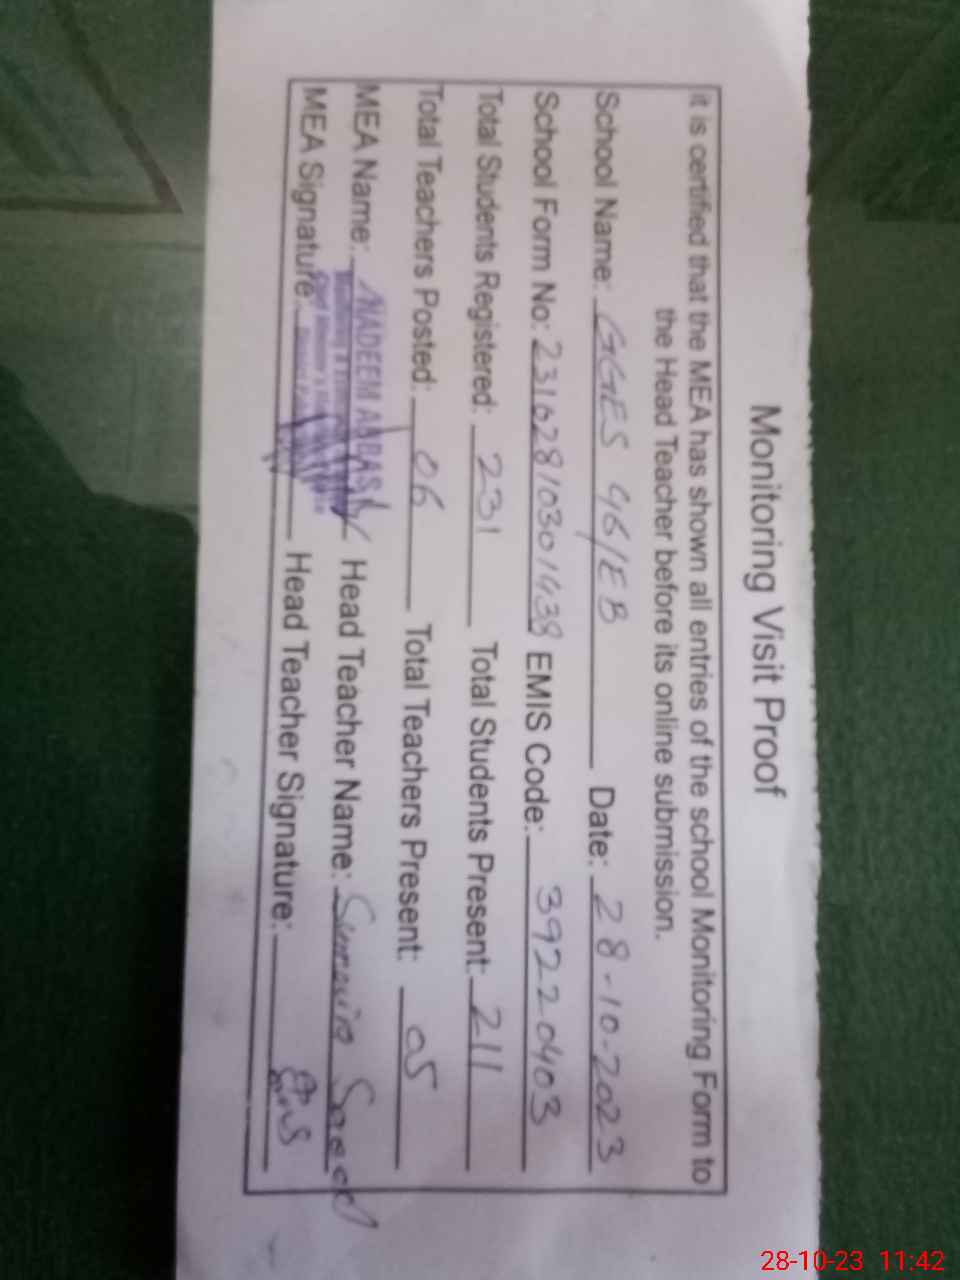 Monitoring Visit Proof
it is certified that the MEA has shown all entries of the school Monitoring Form to
the Head Teacher before its online submission.
School Name: GGES 46/EB Date: 28-10-2023
School Form No: 23162810301438 EMIS Code: 39220403
Total Students Registered: 231 Total Students Present: 211
Total Teachers Posted: 06 Total Teachers Present: 05
MEA Name: NADEEM ABBAS Head Teacher Name: Saeed
MEA Signature: Head Teacher Signature:
28-10-23 11:42